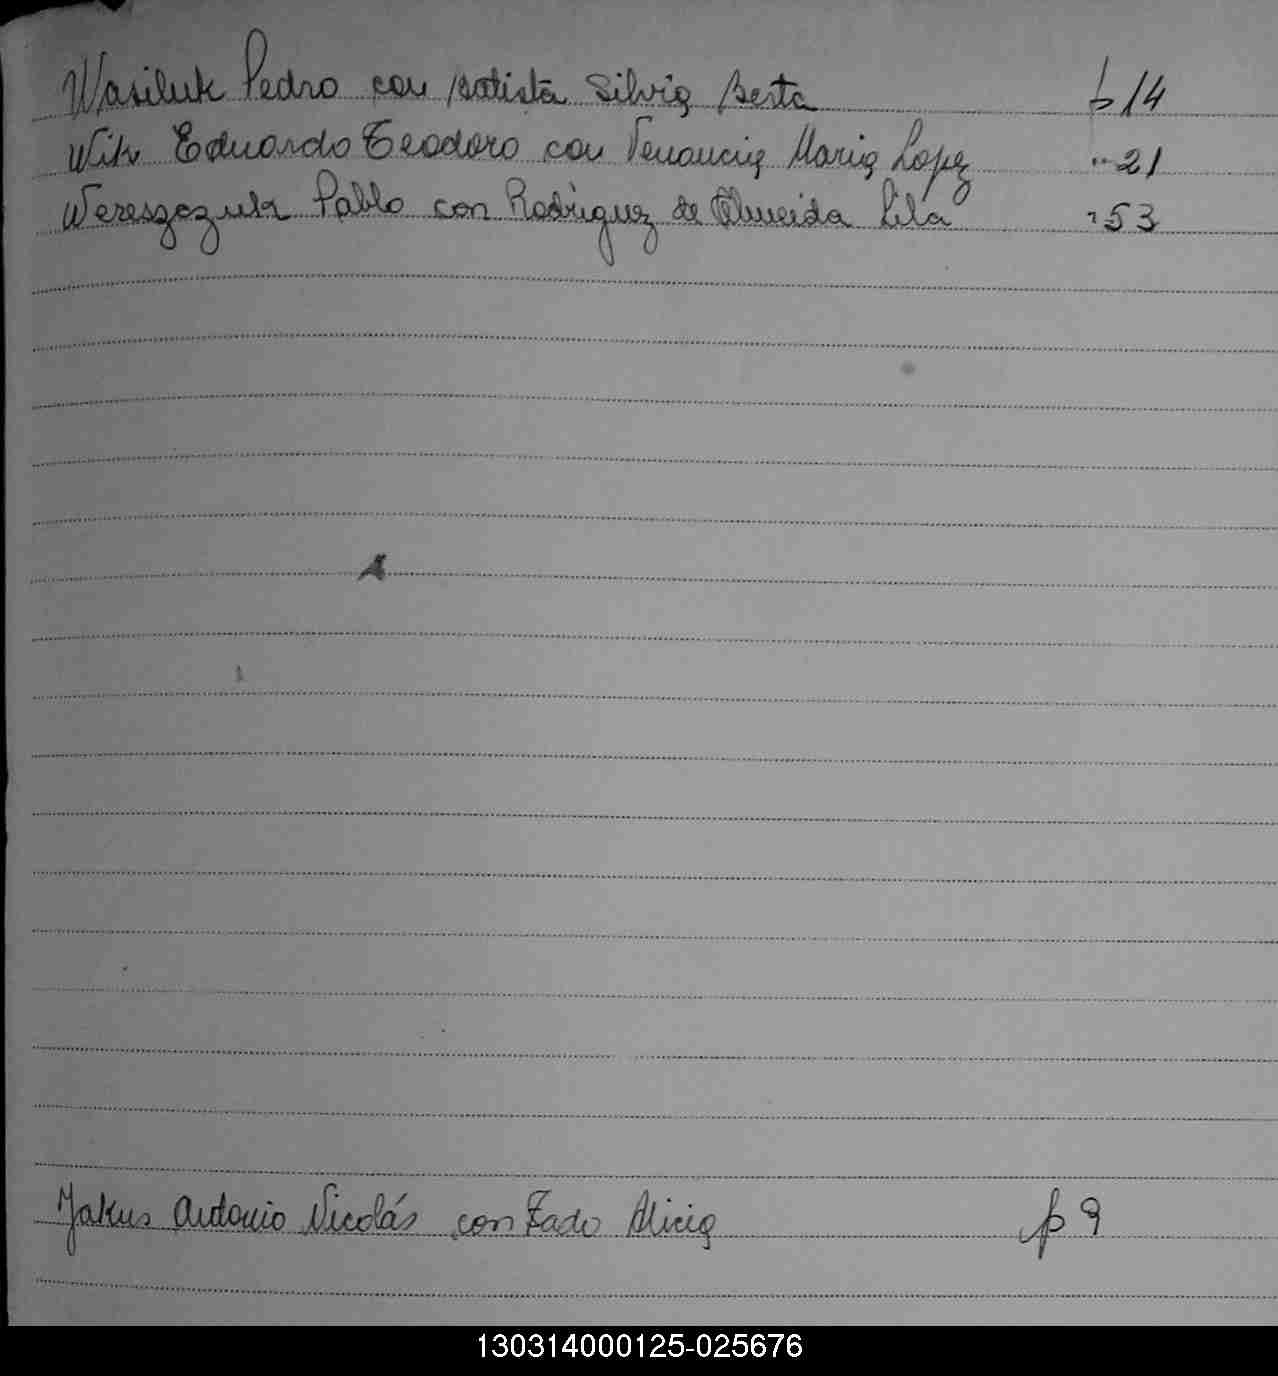 Wasiluk Pedro con Batista Silvia Berta p 14
Witr Eduardo Teodoro con Venancia Maria Lopez " 21
Wereszczuk Pablo con Rodriguez de Almeida Lila " 53
Yakus Antonio Nicolás con Fado Alicia p 9
130314000125-025676